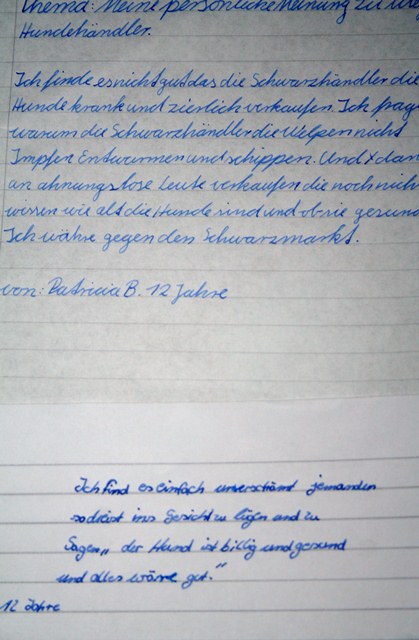 Thema: Meine persönliche Meinung zu
Hundehändler.
Ich finde es nicht gut das die Schwarzhändler die
Hunde krank und zierlich verkaufen. Ich frag
warum die Schwarzhändler die Welpen nicht
Impfen Entwurmen und schippen. Und
an ahnungslose Leute verkaufen die noch nicht
wissen wie alt die Hunde sind und ob sie gesun
Ich währe gegen den Schwarzmarkt.
von: Patricia B. 12 Jahre
Ich find es einfach unverschämt jemanden
so dreist ins Gesicht zu lügen und zu
Sagen „ der Hund ist billig und gesund
und alles wärre gut."
12 Jahre